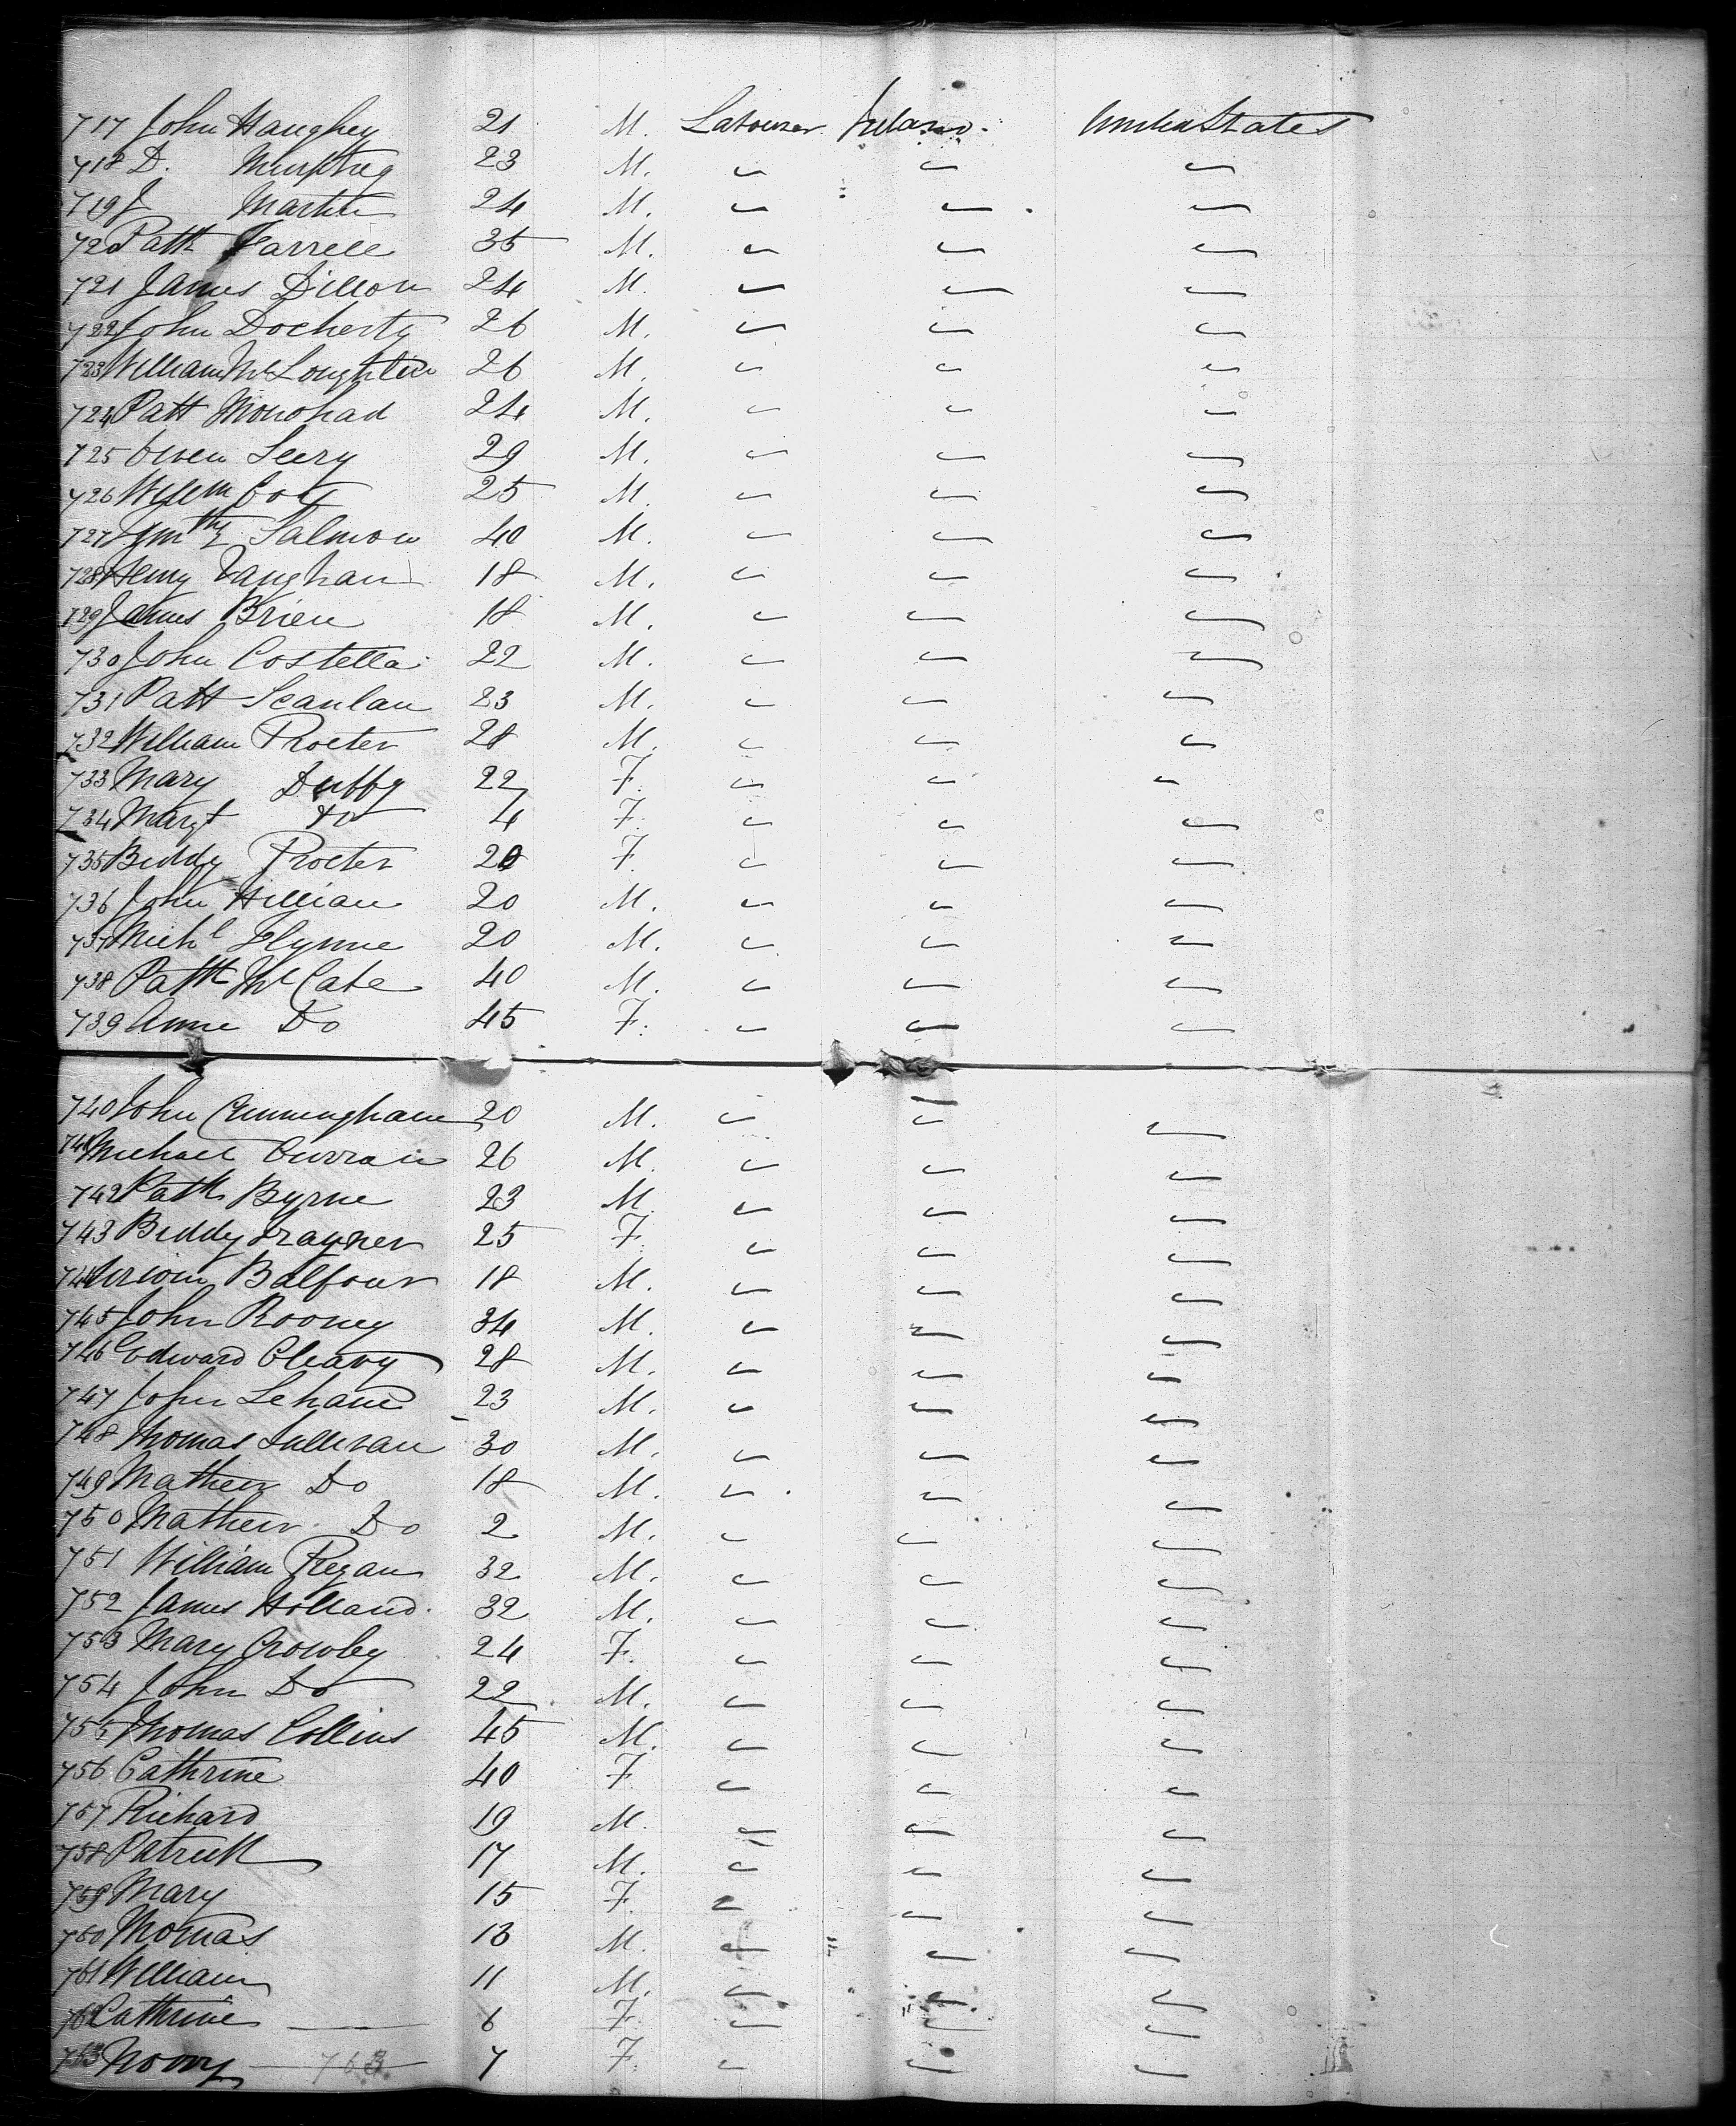 717 John Haughey 21 M. Labourer Ireland. United States
718 D. Murphy 23 M. " " "
719 J Martin 24 M. " " "
720 Patk Farrell 35 M. " " "
721 James Dillon 24 M. " " "
722 John Docherty 26 M. " " "
723 William McLoughlin 26 M. " " "
724 Patt Monohad 24 M. " " "
725 Owen Leery 29 M. " " "
726 Willm 25 M. " " "
727 Salmon 40 M. " " "
728 Henry Vaughan 18 M. " " "
729 James Brien 18 M. " " "
730 John Costella 22 M. " " "
731 Patt Scanlan 23 M. " " "
732 William Procter 28 M. " " "
733 Mary Duffy 22 F. " " "
734 Margt do 4 F. " " "
735 Biddy Procter 20 F. " " "
736 John Hillian 20 M. " " "
737 Michl Flynne 20 M. " " "
738 Patk McCabe 40 M. " " "
739 Anne Do 45 F. " " "
740 John Cunningham 20 M. " " "
741 Michael Curran 26 M. " " "
742 Patk Byrne 23 M. " " "
743 Biddy Trayner 25 F. " " "
744 Balfour 18 M. " " "
745 John Rooney 34 M. " " "
746 Edward Cleary 28 M. " " "
747 John Lehane 23 M. " " "
748 Thomas Sullivan 30 M. " " "
749 Mathew Do 18 M. " " "
750 Mathew Do 2 M. " " "
751 William Regan 32 M. " " "
752 James Holland. 32 M. " " "
753 Mary Crowley 24 F. " " "
754 John Do 22 M. " " "
755 Thomas Collins 45 M. " " "
756 Cathrine 40 F. " " "
757 Richard 19 M. " " "
758 Patrick 17 M. " " "
759 Mary 15 F. " " "
760 Thomas 13 M. " " "
761 William 11 M. " " "
762 Cathrine 6 F. " " "
763 Norry 763 7 F. " " "